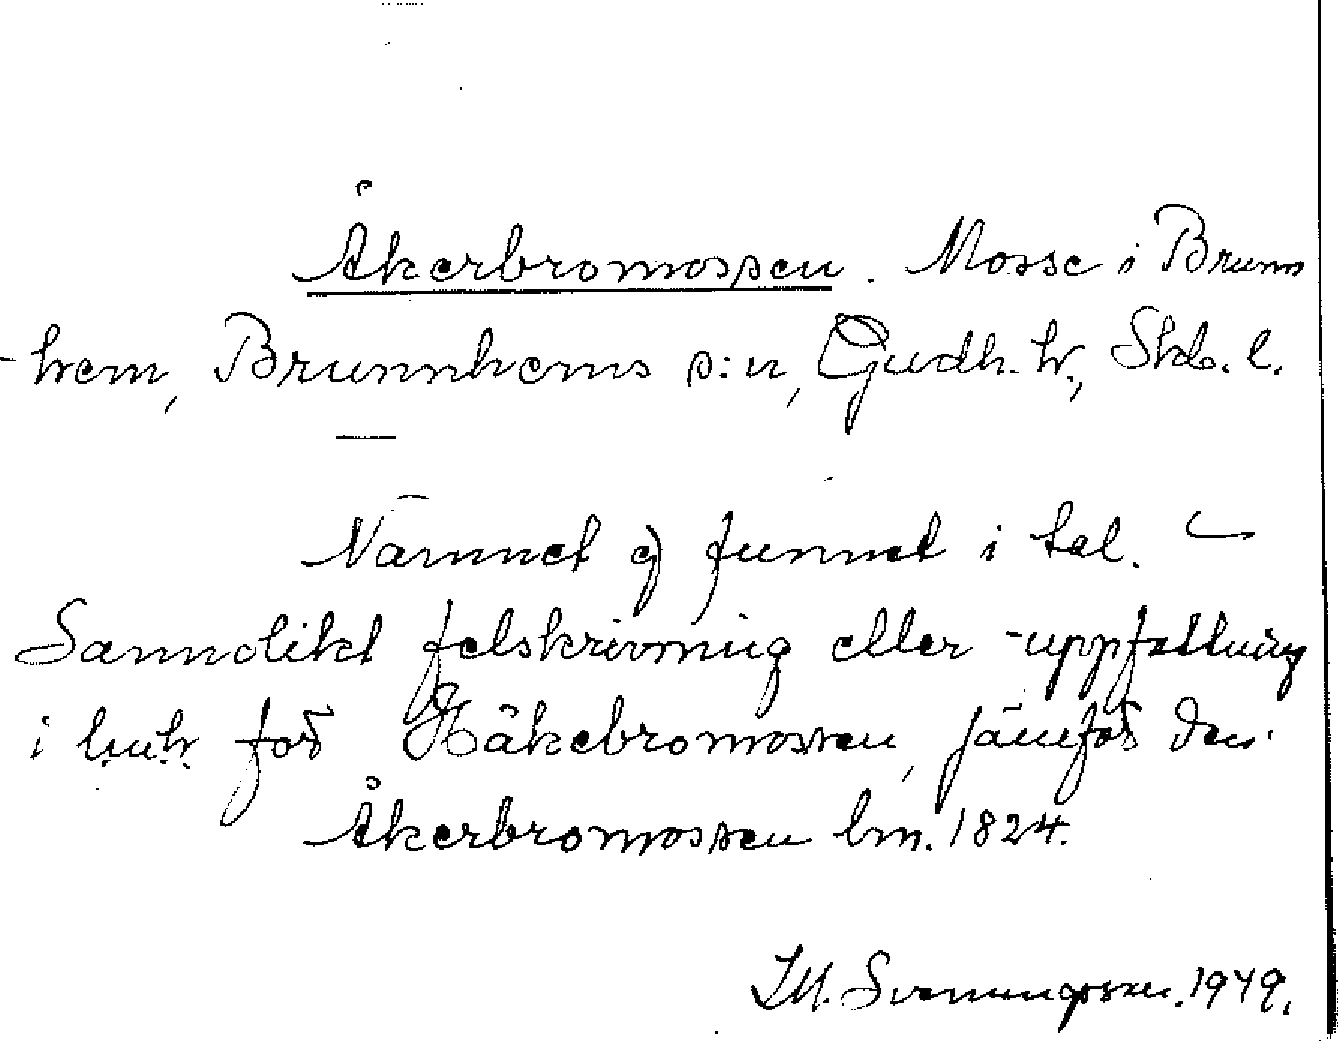 Åkerbromossen. Mosse i Brunn
-hem, Brunnhems s:n, Gudh. hr, Skb. l.
Namnet ej funnet i tal. —
Sannolikt felskrivning eller -uppfattning
i lmh för Häkebromossen, jämför den.
Åkerbromossen lm. 1824.
Svenungsson. 1949.